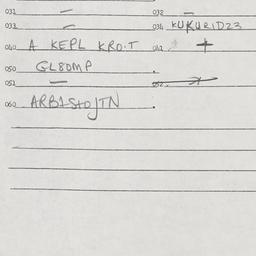 031 – 032 –
033 – 034 KUKURIDZ3
040 A KEPL KRO.T 041 +
050 GL80MP
051 – 052.
060 ARB1StOJTN